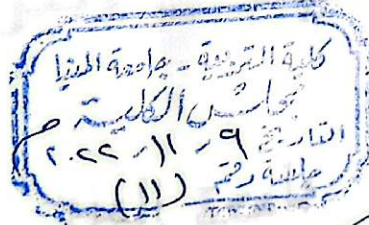 كلية التربية - جامعة المنيا
مجلس الكلية
التاريخ ٩ / ١١ / ٢٠٢٢ م
جلسة رقم (١١)